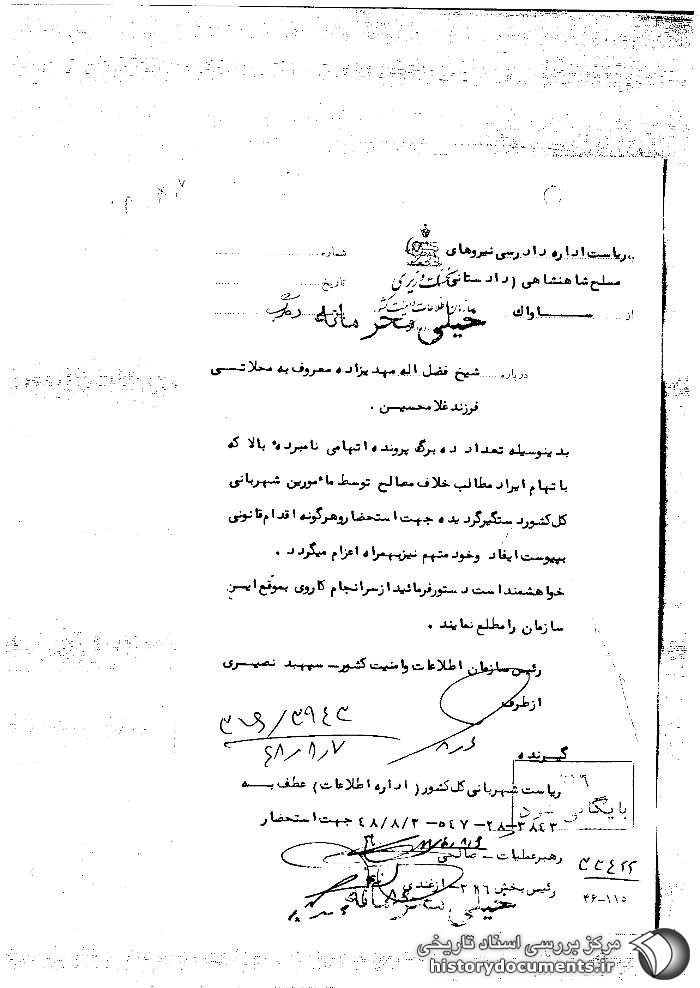 ریاست اداره دادرسی نیروهای
شماره
مسلح شاهنشاهی (دادستانی)
نخست وزیری
تاریخ
از ســـــاواك
سازمان اطلاعات و امنیت کشور
خیلی محرمانه
درباره شیخ فضل اله مهدیزاده معروف به محلاتــی
فرزند غلامحسیـن .
بدینوسیله تعداد ده برگ پرونده اتهامی نامبرده بالا که
باتهام ایراد مطالب خلاف مصالح توسط مأمورین شهربانی
کل کشور دستگیر گردیده جهت استحضار و هرگونه اقدام قانونی
بپیوست ایفاد و خود متهم نیز بهمراه اعزام میگردد .
خواهشمند است دستور فرمائید از سرانجام کار وی بموقع ایـن
سازمان را مطلع نمایند .
رئیس سازمان اطلاعات و امنیت کشور ـ سپهبد نصیــری
از طرف
۳۱۶/۳۹۴۳
۴۸/۸/۷
۸/۶
گیرنده
ریاست شهربانی کل کشور (اداره اطلاعات) عطف بــه
۳۸۴۳-۲۸-۵۴۷-۴۸/۸/۳ جهت استحضار
بایگانی شود
رهبر عملیات ـ صالحی
۳۳۴۲۲
رئیس بخش ۳۲۶ - ازغندی
۴۶-۱۱۵
خیلی محرمانه
مرکز بررسی اسناد تاریخی
historydocuments.ir